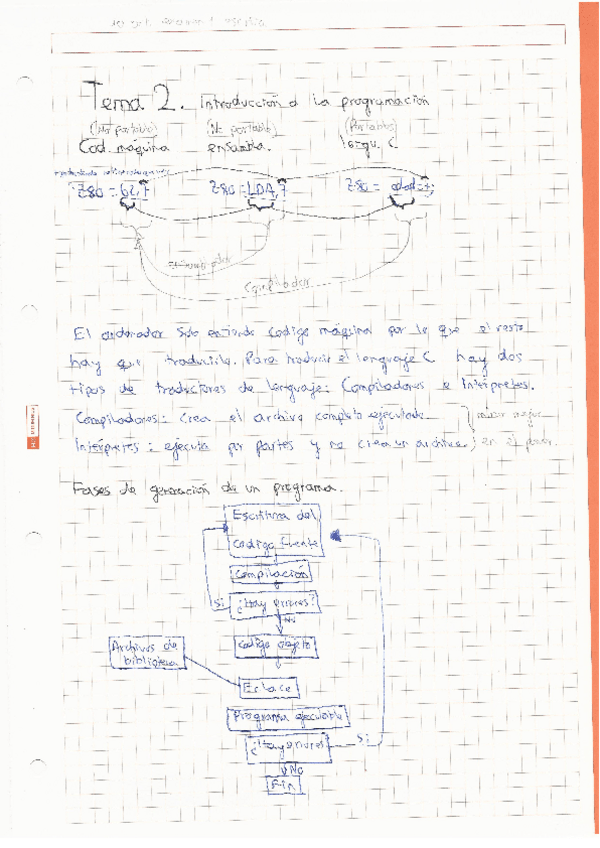 Tema 2. Introducción a la programación
(No portable) (No portable) (Portable)
Cod. máquina ensambla. lengu. C
Z80 = 62,7 Z80 = LDA,7 Z80 =
Compilador
El ordenador solo entiende codigo máquina por lo que el resto
hay que traducirlo. Para traducir el lenguaje C hay dos
tipos de traductores de lenguaje: Compiladores e Intérpretes.
Compiladores: crea el archivo completo ejecutable mirar mejor
Intérpretes: ejecuta por partes y no crea un archivo en el power.
Fases de generación de un programa.
Escritura del
codigo fuente
Compilación
Si ¿Hay errores?
No
Codigo objeto
Archivos de
biblioteca
Enlace
Programa ejecutable
¿Hay errores? Si
No
Fin